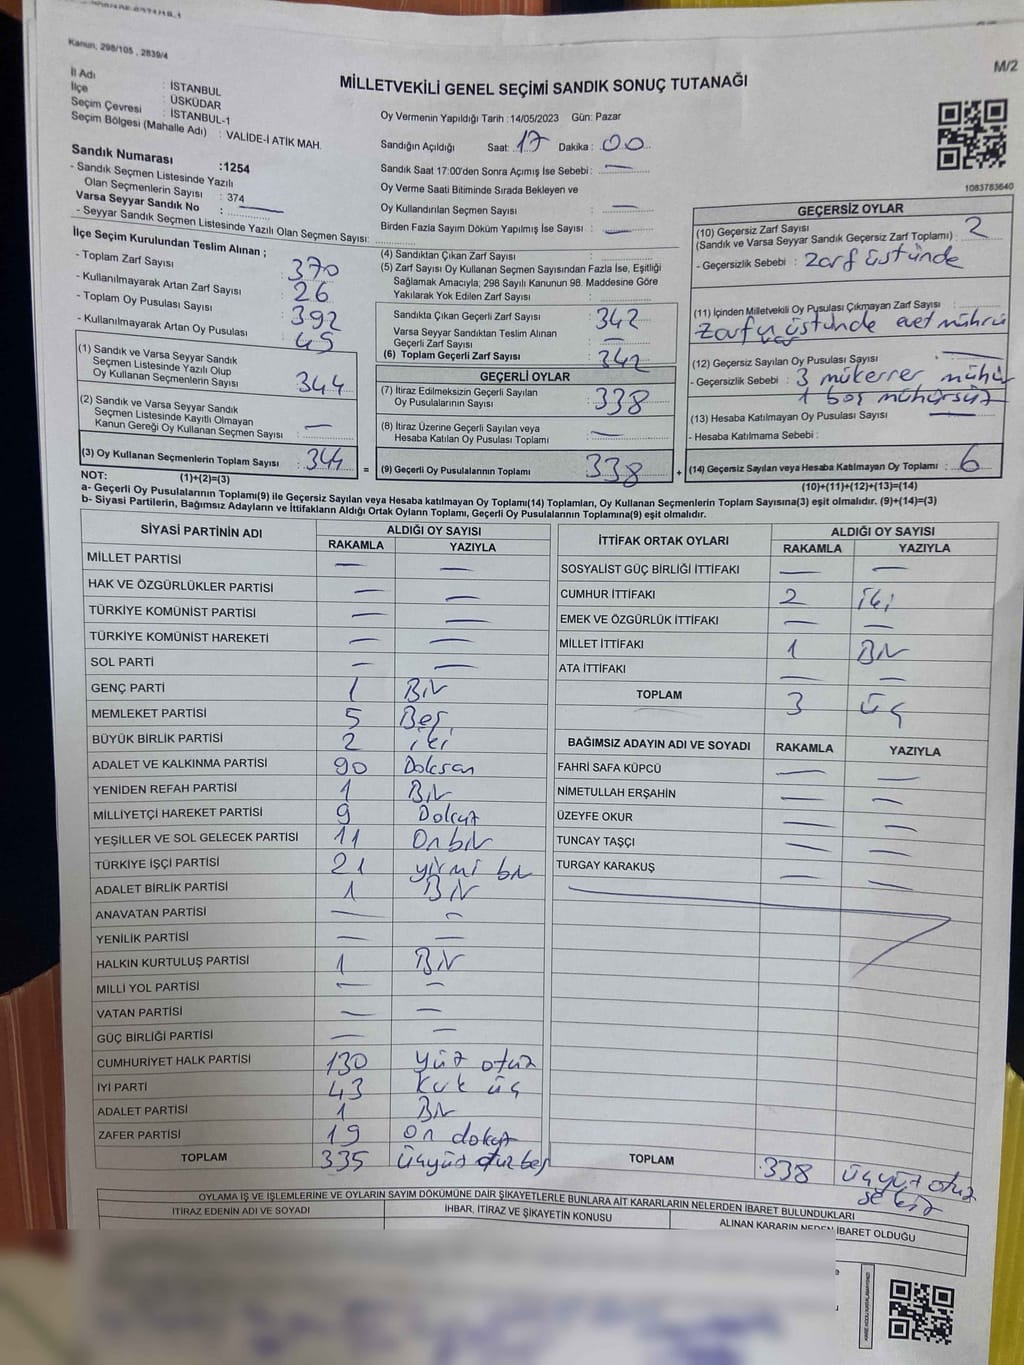 Kanun, 298/105 , 2839/4
M/2
MİLLETVEKİLİ GENEL SEÇİMİ SANDIK SONUÇ TUTANAĞI
İl Adı : İSTANBUL
İlçe : ÜSKÜDAR
Seçim Çevresi : İSTANBUL-1
Seçim Bölgesi (Mahalle Adı) : VALİDE-İ ATİK MAH.
Sandık Numarası :1254
- Sandık Seçmen Listesinde Yazılı
Olan Seçmenlerin Sayısı : 374
Varsa Seyyar Sandık No : —
- Seyyar Sandık Seçmen Listesinde Yazılı Olan Seçmen Sayısı:
İlçe Seçim Kurulundan Teslim Alınan ;
- Toplam Zarf Sayısı : 370
- Kullanılmayarak Artan Zarf Sayısı : 26
- Toplam Oy Pusulası Sayısı : 392
- Kullanılmayarak Artan Oy Pusulası : 45
(1) Sandık ve Varsa Seyyar Sandık
Seçmen Listesinde Yazılı Olup
Oy Kullanan Seçmenlerin Sayısı : 344
(2) Sandık ve Varsa Seyyar Sandık
Seçmen Listesinde Kayıtlı Olmayan
Kanun Gereği Oy Kullanan Seçmen Sayısı : —
(3) Oy Kullanan Seçmenlerin Toplam Sayısı : 344
Oy Vermenin Yapıldığı Tarih :14/05/2023 Gün: Pazar
Sandığın Açıldığı Saat: 17 Dakika : 00
Sandık Saat 17:00'den Sonra Açımış İse Sebebi : —
Oy Verme Saati Bitiminde Sırada Bekleyen ve
Oy Kullandırılan Seçmen Sayısı : —
Birden Fazla Sayım Döküm Yapılmış İse Sayısı : —
(4) Sandıktan Çıkan Zarf Sayısı :
(5) Zarf Sayısı Oy Kullanan Seçmen Sayısından Fazla İse, Eşitliği
Sağlamak Amacıyla; 298 Sayılı Kanunun 98. Maddesine Göre
Yakılarak Yok Edilen Zarf Sayısı :
Sandıkta Çıkan Geçerli Zarf Sayısı : 342
Varsa Seyyar Sandıktan Teslim Alınan
Geçerli Zarf Sayısı : —
(6) Toplam Geçerli Zarf Sayısı : 342
GEÇERLİ OYLAR
(7) İtiraz Edilmeksizin Geçerli Sayılan
Oy Pusulalarının Sayısı : 338
(8) İtiraz Üzerine Geçerli Sayılan veya
Hesaba Katılan Oy Pusulası Toplamı : —
= (9) Geçerli Oy Pusulalarının Toplamı : 338
1083783640
GEÇERSİZ OYLAR
(10) Geçersiz Zarf Sayısı
(Sandık ve Varsa Seyyar Sandık Geçersiz Zarf Toplamı) : 2
- Geçersizlik Sebebi : Zarf üstünde
(11) İçinden Milletvekili Oy Pusulası Çıkmayan Zarf Sayısı :
Zarfın üstünde evet mührü
var
(12) Geçersiz Sayılan Oy Pusulası Sayısı : —
- Geçersizlik Sebebi : 3 mükerrer mühür
1 boş mühürsüz
(13) Hesaba Katılmayan Oy Pusulası Sayısı : —
- Hesaba Katılmama Sebebi :
+ (14) Geçersiz Sayılan veya Hesaba Katılmayan Oy Toplamı : 6
NOT: (1)+(2)=(3) (10)+(11)+(12)+(13)=(14)
a- Geçerli Oy Pusulalarının Toplamı(9) ile Geçersiz Sayılan veya Hesaba katılmayan Oy Toplamı(14) Toplamları, Oy Kullanan Seçmenlerin Toplam Sayısına(3) eşit olmalıdır. (9)+(14)=(3)
b- Siyasi Partilerin, Bağımsız Adayların ve İttifakların Aldığı Ortak Oyların Toplamı, Geçerli Oy Pusulalarının Toplamına(9) eşit olmalıdır.
SİYASİ PARTİNİN ADI ALDIĞI OY SAYISI
RAKAMLA YAZIYLA
MİLLET PARTİSİ — —
HAK VE ÖZGÜRLÜKLER PARTİSİ — —
TÜRKİYE KOMÜNİST PARTİSİ — —
TÜRKİYE KOMÜNİST HAREKETİ — —
SOL PARTİ — —
GENÇ PARTİ 1 Bir
MEMLEKET PARTİSİ 5 Beş
BÜYÜK BİRLİK PARTİSİ 2 iki
ADALET VE KALKINMA PARTİSİ 90 Doksan
YENİDEN REFAH PARTİSİ 1 Bir
MİLLİYETÇİ HAREKET PARTİSİ 9 Dokuz
YEŞİLLER VE SOL GELECEK PARTİSİ 11 Onbir
TÜRKİYE İŞÇİ PARTİSİ 21 yirmi bir
ADALET BİRLİK PARTİSİ 1 Bir
ANAVATAN PARTİSİ — —
YENİLİK PARTİSİ — —
HALKIN KURTULUŞ PARTİSİ 1 Bir
MİLLİ YOL PARTİSİ — —
VATAN PARTİSİ — —
GÜÇ BİRLİĞİ PARTİSİ — —
CUMHURİYET HALK PARTİSİ 130 Yüz otuz
İYİ PARTİ 43 Kırk üç
ADALET PARTİSİ 1 Bir
ZAFER PARTİSİ 19 on dokuz
TOPLAM 335 üçyüz otuz beş
İTTİFAK ORTAK OYLARI ALDIĞI OY SAYISI
RAKAMLA YAZIYLA
SOSYALİST GÜÇ BİRLİĞİ İTTİFAKI — —
CUMHUR İTTİFAKI 2 iki
EMEK VE ÖZGÜRLÜK İTTİFAKI — —
MİLLET İTTİFAKI 1 Bir
ATA İTTİFAKI — —
TOPLAM 3 üç
BAĞIMSIZ ADAYIN ADI VE SOYADI RAKAMLA YAZIYLA
FAHRİ SAFA KÜPCÜ — —
NİMETULLAH ERŞAHİN — —
ÜZEYFE OKUR — —
TUNCAY TAŞÇI — —
TURGAY KARAKUŞ — —
TOPLAM 338 üçyüz otuz
sekiz
OYLAMA İŞ VE İŞLEMLERİNE VE OYLARIN SAYIM DÖKÜMÜNE DAİR ŞİKAYETLERLE BUNLARA AİT KARARLARIN NELERDEN İBARET BULUNDUKLARI
İTİRAZ EDENİN ADI VE SOYADI İHBAR, İTİRAZ VE ŞİKAYETİN KONUSU ALINAN KARARIN NEDEN İBARET OLDUĞU